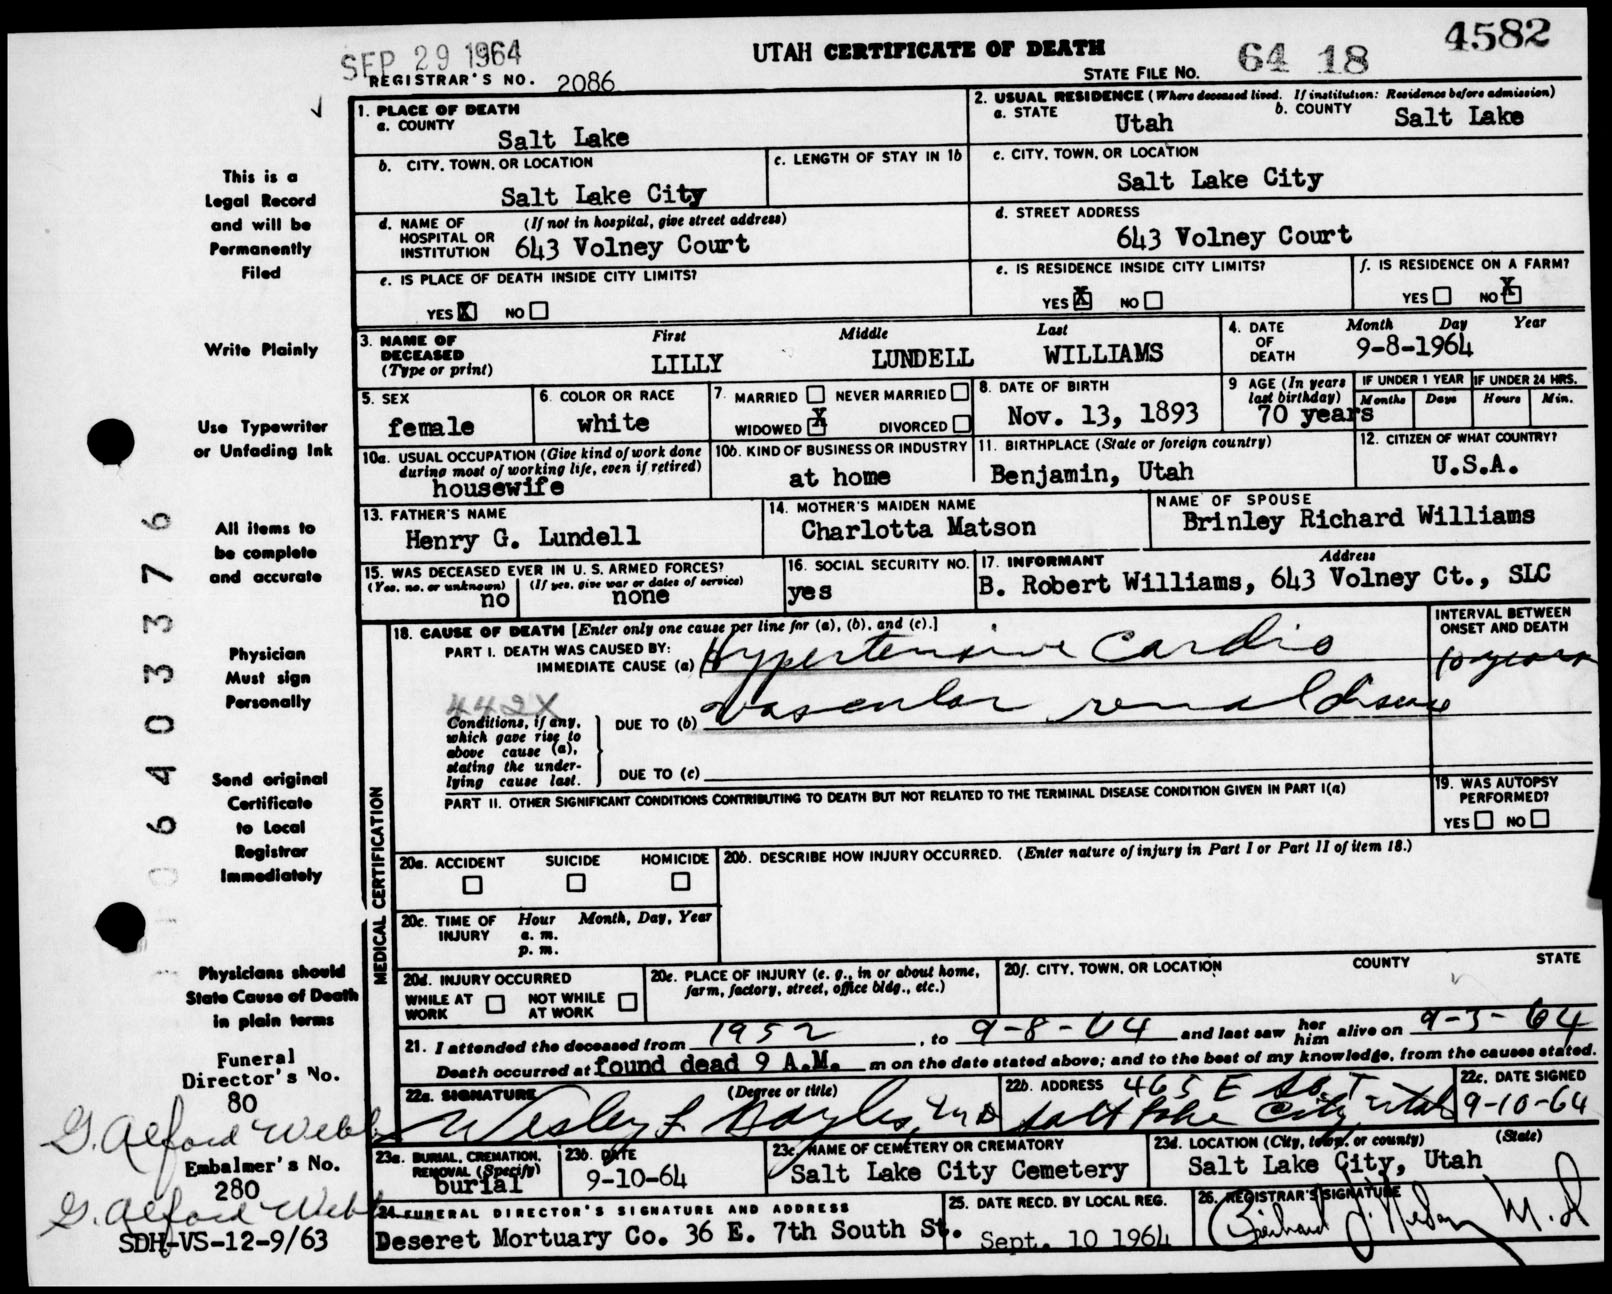 SEP 29 1964
UTAH CERTIFICATE OF DEATH
4582
REGISTRAR'S NO. 2086
STATE FILE NO. 64 18
1. PLACE OF DEATH
a. COUNTY
Salt Lake
2. USUAL RESIDENCE (Where deceased lived. If institution: Residence before admission)
a. STATE Utah
b. COUNTY Salt Lake
b. CITY, TOWN, OR LOCATION
Salt Lake City
c. LENGTH OF STAY IN 1b
c. CITY, TOWN, OR LOCATION
Salt Lake City
d. NAME OF HOSPITAL OR INSTITUTION
(If not in hospital, give street address)
643 Volney Court
d. STREET ADDRESS
643 Volney Court
e. IS PLACE OF DEATH INSIDE CITY LIMITS?
YES X NO
e. IS RESIDENCE INSIDE CITY LIMITS?
YES X NO
f. IS RESIDENCE ON A FARM?
YES NO X
3. NAME OF DECEASED
(Type or print)
First Middle Last
LILLY LUNDELL WILLIAMS
4. DATE OF DEATH
Month Day Year
9-8-1964
5. SEX
female
6. COLOR OR RACE
white
7. MARRIED NEVER MARRIED
WIDOWED X DIVORCED
8. DATE OF BIRTH
Nov. 13, 1893
9 AGE (In years last birthday)
70 years
IF UNDER 1 YEAR
Months Days
IF UNDER 24 HRS.
Hours Min.
10a. USUAL OCCUPATION (Give kind of work done during most of working life, even if retired)
housewife
10b. KIND OF BUSINESS OR INDUSTRY
at home
11. BIRTHPLACE (State or foreign country)
Benjamin, Utah
12. CITIZEN OF WHAT COUNTRY?
U.S.A.
13. FATHER'S NAME
Henry G. Lundell
14. MOTHER'S MAIDEN NAME
Charlotta Matson
NAME OF SPOUSE
Brinley Richard Williams
15. WAS DECEASED EVER IN U. S. ARMED FORCES?
(Yes, no, or unknown) (If yes, give war or dates of service)
no none
16. SOCIAL SECURITY NO.
yes
17. INFORMANT Address
B. Robert Williams, 643 Volney Ct., SLC
MEDICAL CERTIFICATION
18. CAUSE OF DEATH [Enter only one cause per line for (a), (b), and (c).]
PART I. DEATH WAS CAUSED BY:
IMMEDIATE CAUSE (a) Hypertensive Cardio
INTERVAL BETWEEN ONSET AND DEATH
10 years
442X
Conditions, if any, which gave rise to above cause (a), stating the underlying cause last.
DUE TO (b) vascular renal disease
DUE TO (c)
PART II. OTHER SIGNIFICANT CONDITIONS CONTRIBUTING TO DEATH BUT NOT RELATED TO THE TERMINAL DISEASE CONDITION GIVEN IN PART I(a)
19. WAS AUTOPSY PERFORMED?
YES NO
20a. ACCIDENT SUICIDE HOMICIDE
20b. DESCRIBE HOW INJURY OCCURRED. (Enter nature of injury in Part I or Part II of item 18.)
20c. TIME OF INJURY Hour Month, Day, Year
a. m.
p. m.
20d. INJURY OCCURRED
WHILE AT WORK NOT WHILE AT WORK
20e. PLACE OF INJURY (e. g., in or about home, farm, factory, street, office bldg., etc.)
20f. CITY, TOWN, OR LOCATION COUNTY STATE
21. I attended the deceased from 1952, to 9-8-64 and last saw her him alive on 9-3-64
Death occurred at found dead 9 A.M. m on the date stated above; and to the best of my knowledge, from the causes stated.
22a. SIGNATURE (Degree or title)
Wesley F
22b. ADDRESS 465 E
Salt Lake City Utah
22c. DATE SIGNED
9-10-64
23a. BURIAL, CREMATION, REMOVAL (Specify)
burial
23b. DATE
9-10-64
23c. NAME OF CEMETERY OR CREMATORY
Salt Lake City Cemetery
23d. LOCATION (City, town, or county) (State)
Salt Lake City, Utah
24. FUNERAL DIRECTOR'S SIGNATURE AND ADDRESS
Deseret Mortuary Co. 36 E. 7th South St.
25. DATE RECD. BY LOCAL REG.
Sept. 10 1964
26. REGISTRAR'S SIGNATURE
M.D
This is a
Legal Record
and will be
Permanently
Filed
Write Plainly
Use Typewriter
or Unfading Ink
All items to
be complete
and accurate
Physician
Must sign
Personally
Send original
Certificate
to Local
Registrar
Immediately
Physicians should
State Cause of Death
in plain terms
Funeral
Director's No.
80
G. Alford Webb
Embalmer's No.
280
G. Alford Webb
SDH-VS-12-9/63
06403376